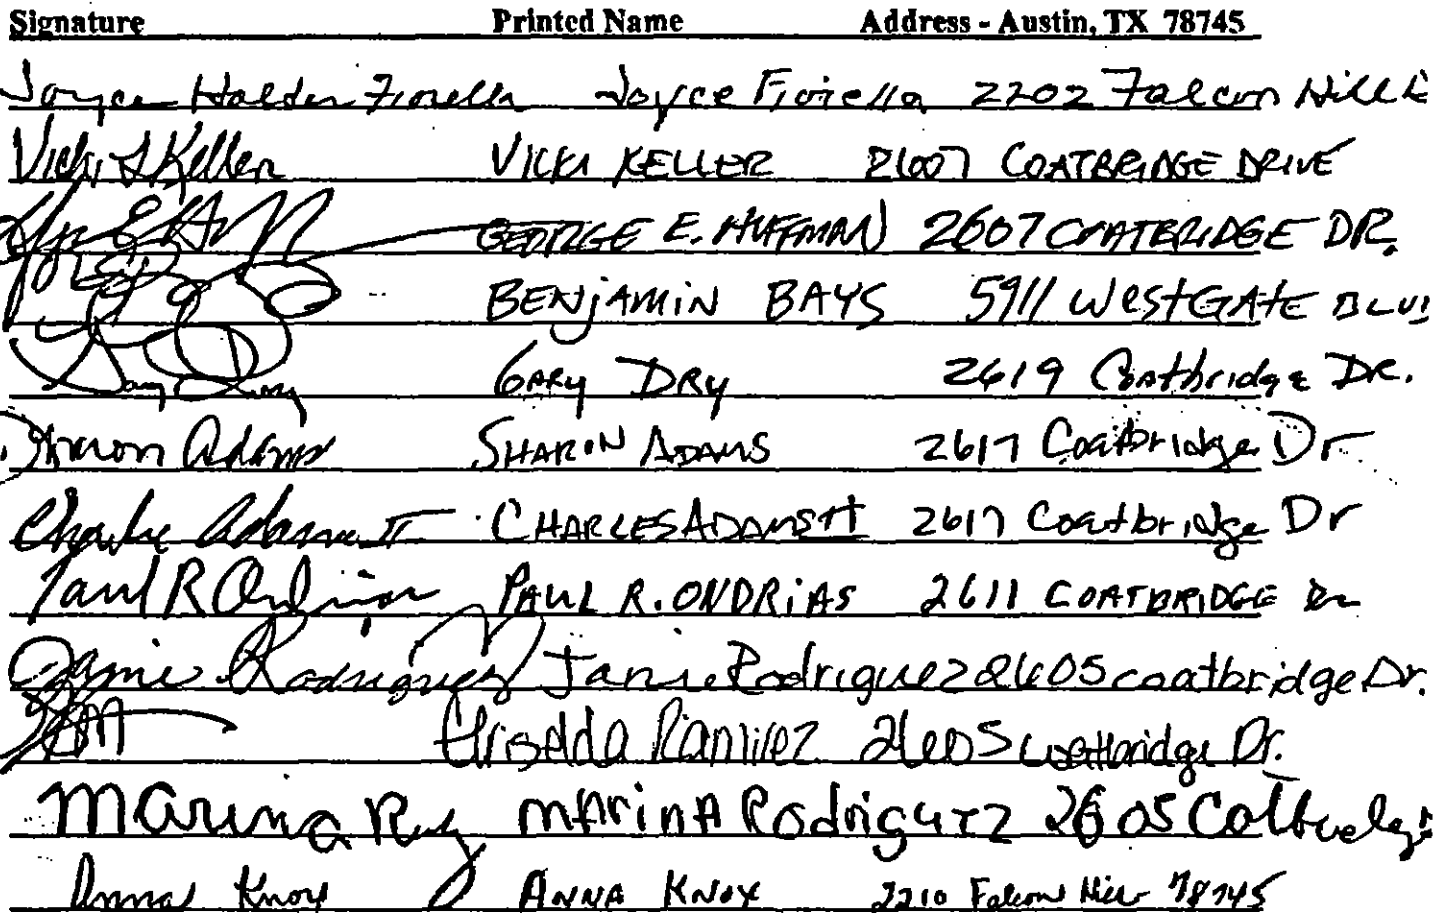 Signature Printed Name Address - Austin, TX 78745
Joyce Halder Fiorella Joyce Fiorella 2202 Falcon Hill
Vicki L Keller VICKI KELLER 2607 COATBRIDGE DRIVE
GEORGE E. HUFFMAN 2607 COATBRIDGE DR.
BENJAMIN BAYS 5911 WESTGATE BLVD
Gary Dry GARY DRY 2619 Coatbridge Dr.
Sharon Adams SHARON ADAMS 2617 Coatbridge Dr
Charles Adams II CHARLES ADAMS II 2617 Coatbridge Dr
Paul R Ondrias PAUL R. ONDRIAS 2611 COATBRIDGE Dr
Janie Rodriguez Janie Rodriguez 2605 coatbridge Dr.
Griselda Ramirez 2605 Coatbridge Dr.
Marina Rdz MARINA Rodriguez 2605
Anna Knox ANNA KNOX 2210 Falcon Hill 78745